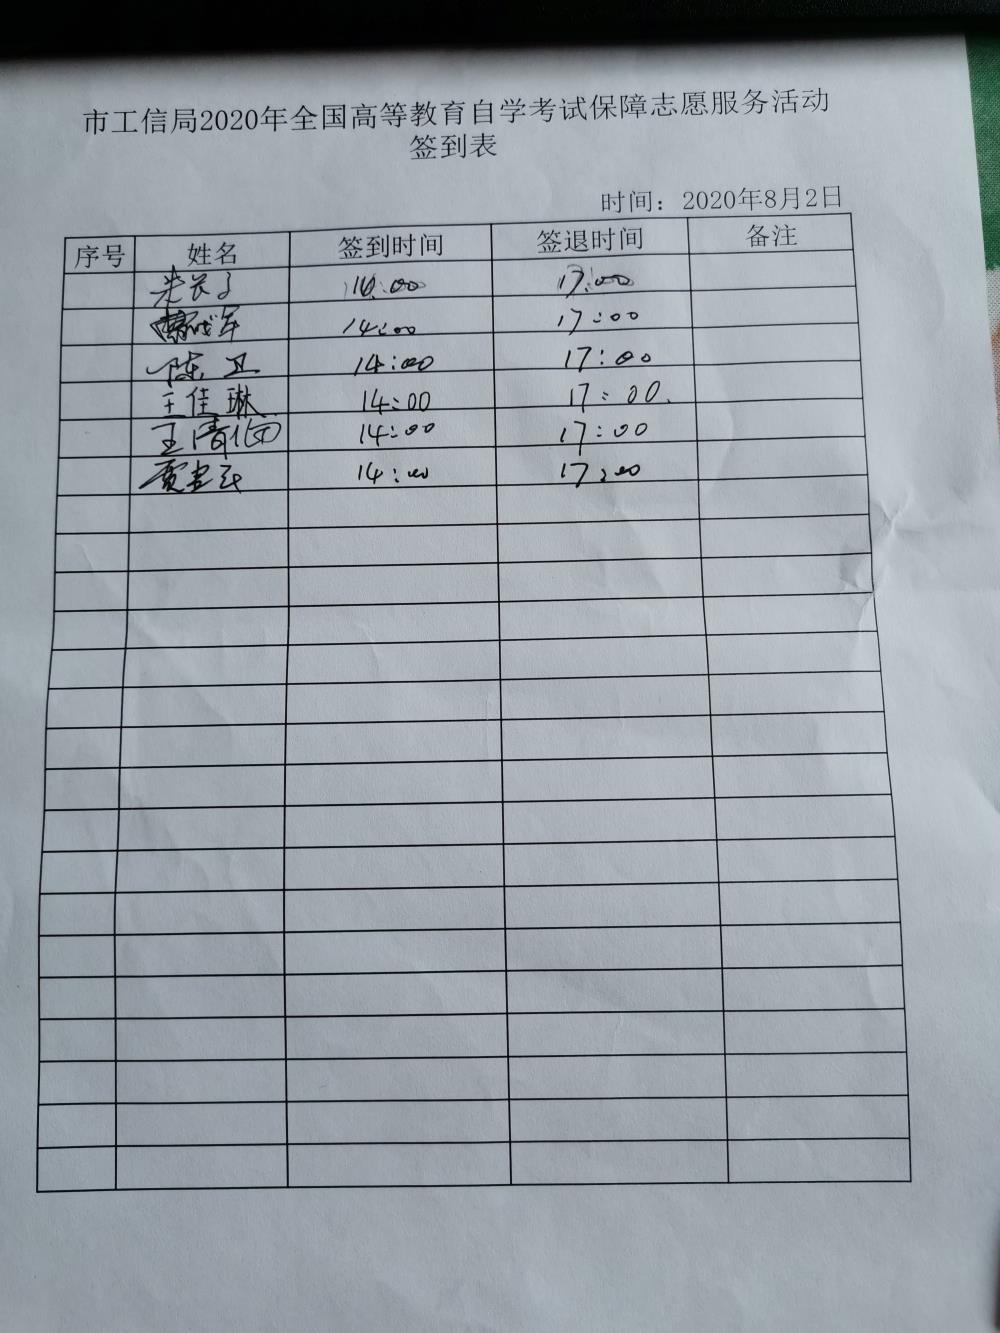 市工信局2020年全国高等教育自学考试保障志愿服务活动
签到表
时间：2020年8月2日
序号 姓名 签到时间 签退时间 备注
14:00 17:00
14:00 17:00
陈卫 14:00 17:00
王佳琳 14:00 17:00.
王清 14:00 17:00
贾 14:00 17:00